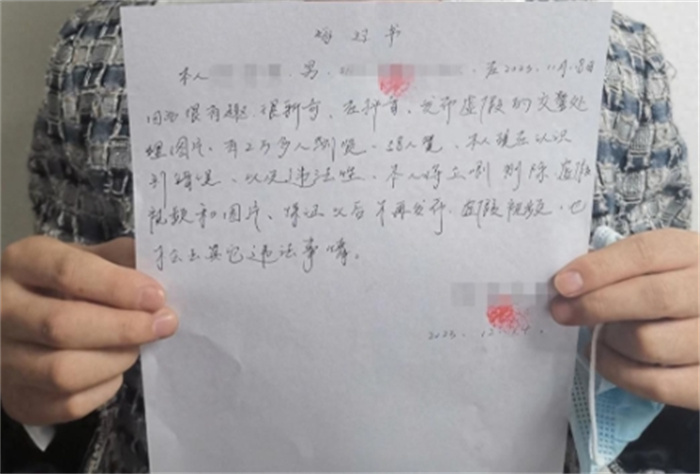 悔过书
本人 男. 在2023.11月.8日
因为很有趣.很新奇.在抖音.发布虚假的交警处
理图片.有2万多人浏览. 人赞.本人现在认识
到错误.以及违法性.本人将立刻删除虚假
视频和图片.保证以后不再发布.虚假视频.也
不会去其它违法事情。
2023.12.